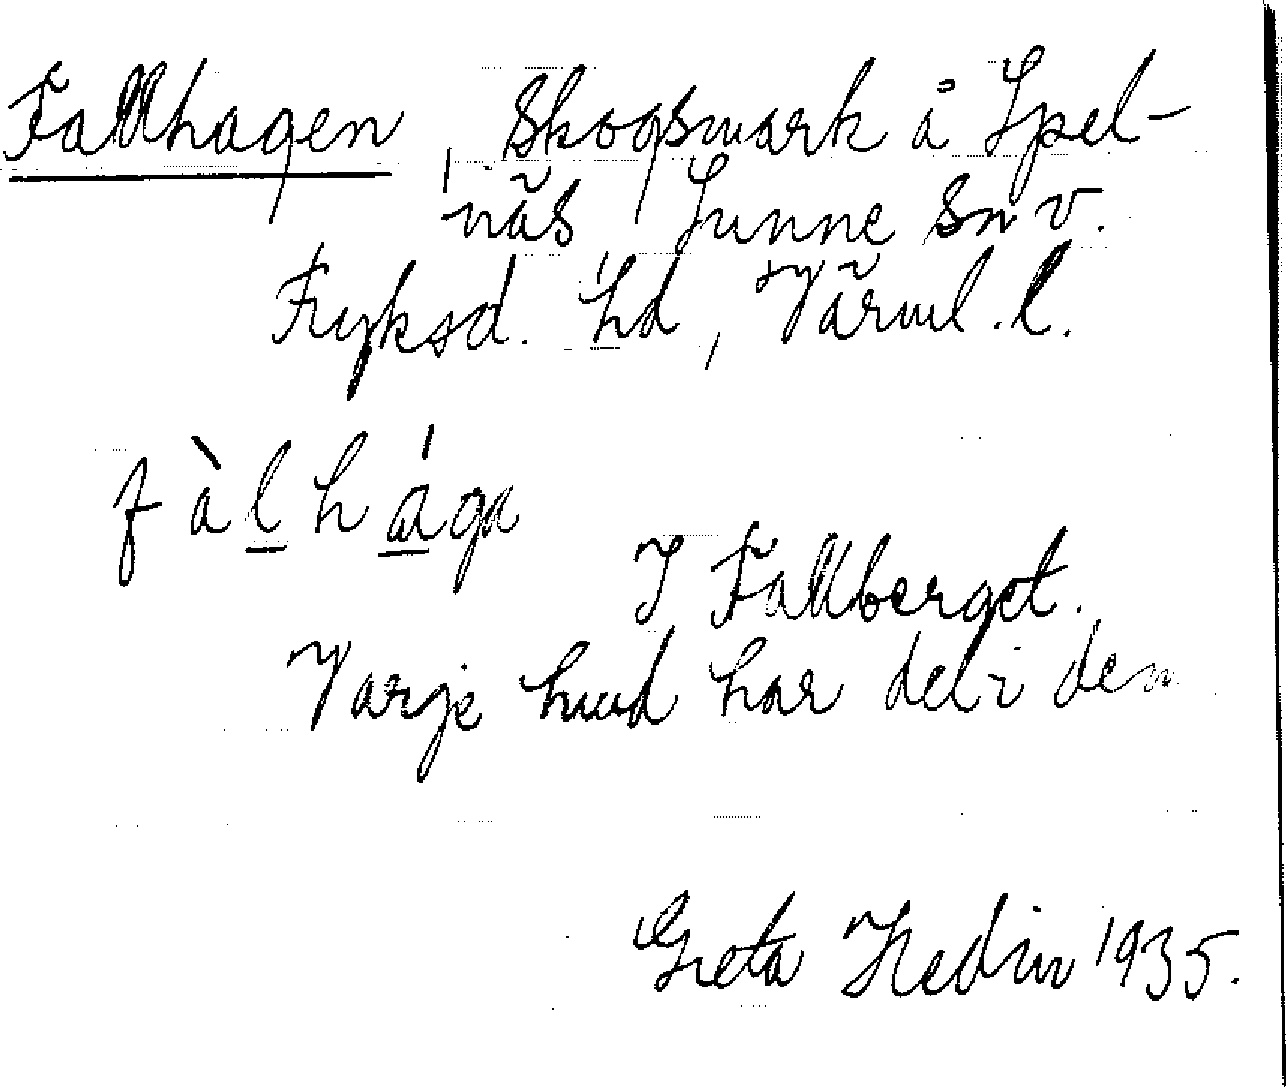 Fallhagen, Skogsmark å Spel-
näs Sunne sn v.
Fryksd. hd, Värml. l.
fàlhága
I Fallberget.
Varje hud har del i den
Greta Hedin 1935.